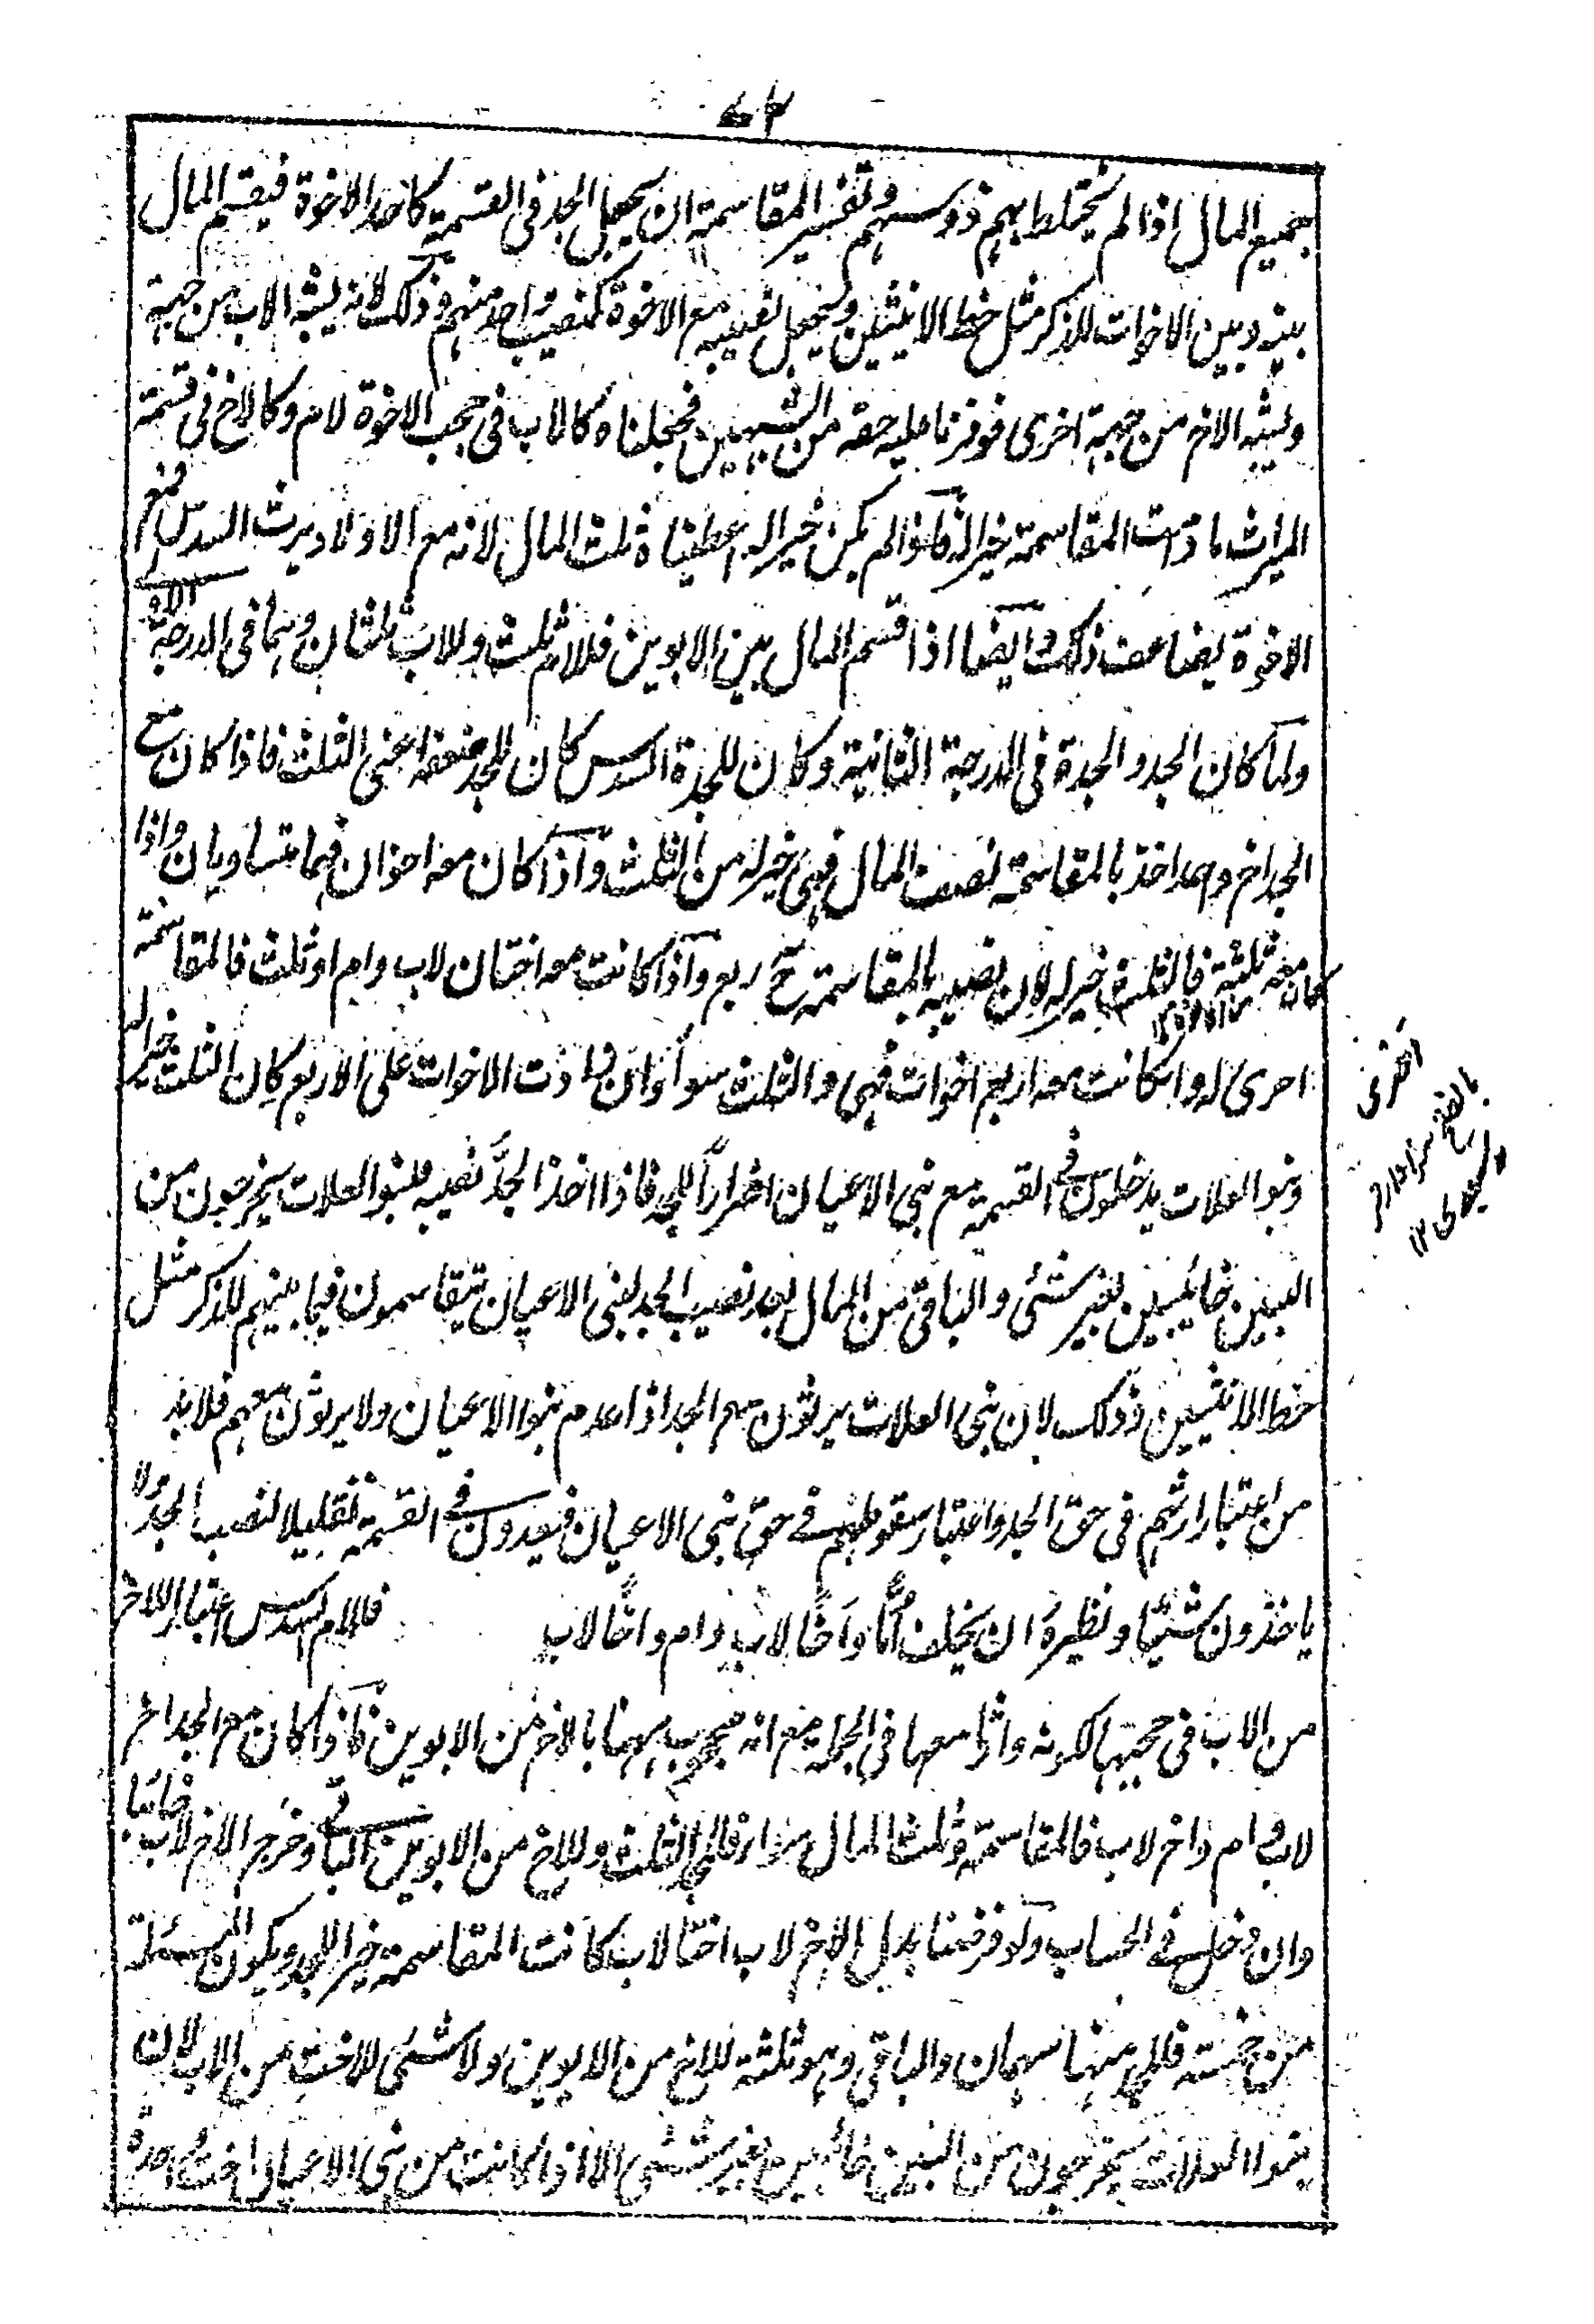 جميع المال اذا لم يختلط بهم ذو سهم وتفسير المقاسمة ان يجعل الجد فى القسمة كاحد الاخوة فيقسم المال
بينه وبين الاخوات للذكر مثل حظ الانثيين ويجعل نصيبه مع الاخوة كنصيب واحد منهم وذلك لانه يشبه الاب من جهة
ويشبه الاخ من جهة اخرى فوفرنا عليه حقه من الشبهين فجعلناه كالاب فى حجب الاخوة لام وكالاخ فى قسمة
الميراث ما دامت المقاسمة خيرا له فاذا لم يكن خيرا له اعطيناه ثلث المال لانه مع الاولاد يرث السدس فمع
الاخوة يضاعف ذلك وايضا اذا قسم المال بين الابوين فللام ثلث وللاب ثلثان وهما فى الدرجة الاولى
ولما كان الجد والجدة فى الدرجة الثانية وكان للجدة السدس كان للجد ضعفه اعنى الثلث فاذا كان مع
الجد اخ واحد اخذ بالمقاسمة نصف المال فهى خير له من الثلث واذا كان معه اخوان فهما يتساويان واذا
كان معه ثلثة فالثلث خير له لان نصيبه بالمقاسمة ح ربع واذا كانت معه اختان لاب وام او ثلث فالمقاسمة
احرى له وان كانت معه اربع اخوات فهى والثلث سواء وان زادت الاخوات على الاربع كان الثلث خيرا له
وبنو العلات يدخلون فى القسمة مع بنى الاعيان اضرارا للجد فاذا اخذ الجد نصيبه فبنو العلات يخرجون من
البين خائبين بغير شئى والباقى من المال بعد نصيب الجد لبنى الاعيان يتقاسمون فيما بينهم للذكر مثل
حظ الانثيين وذلك لان بنى العلات يرثون مع الجد اذا عدم بنوا الاعيان ولا يرثون معهم فلا بد
من اعتبار ارثهم فى حق الجد واعتبار سقوطهم فى حق بنى الاعيان فيعدون فى القسمة تقليلا لنصيب الجد ولا
ياخذون شيئا ونظيره ان يخلف اما واخا لاب وام واخا لاب فللام السدس اعتبارا للاخ
من الاب فى حجبها لكونه وارثا معها فى الجملة مع انه محجوب ههنا بالاخ من الابوين فاذا كان مع الجد اخ
لاب وام واخ لاب فالمقاسمة وثلث المال سواء فللجد الثلث وللاخ من الابوين الباقى وخرج الاخ لاب خائبا
وان دخل فى الحساب ولو فرضنا بدل الاخ لاب اختا لاب كانت المقاسمة خيرا للجد ويكون المسئلة
من خمسة فللجد منها سهمان والباقى وهو ثلثة للاخ من الابوين ولا شئى للاخت من الاب لان
بنوا العلات يخرجون من البين خائبين بغير شئى الا اذا كانت من بنى الاعيان اخت واحدة
احرى
بالفتح سزاوارتر